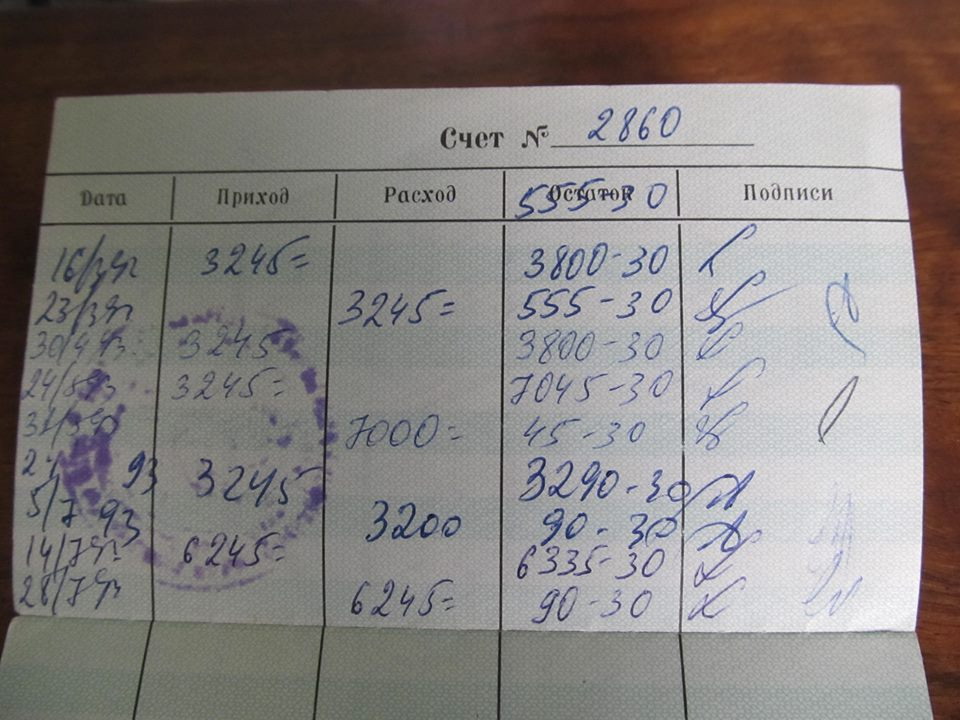 Счет № 2860
Дата Приход Расход Остаток Подписи
555-30
16/3 93 3245= 3800-30
23/3 93 3245= 555-30
30/4 93 3245 3800-30
24/5 93 3245= 7045-30
31/5 93 7000= 45-30
93 3245 3290-30
5/7 93 3200 90-30
14/7 93 6245= 6335-30
28/7 93 6245= 90-30